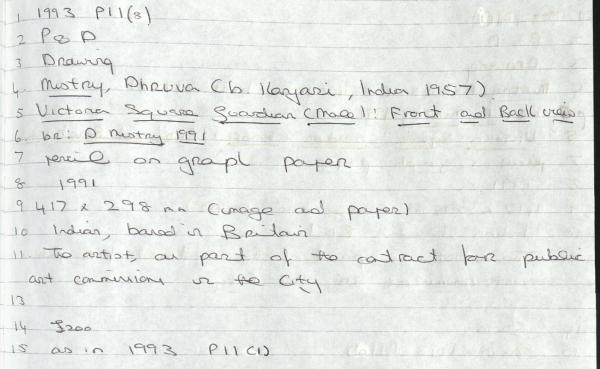 1 1993 P11(3)
2 P & D
3 Drawing
4 Mistry, Dhruva (b. Kanjari, India 1957)
5 Victoria Square Guardian (Male): Front and Back view
6 br: D Mistry 1991
7 pencil on graph paper
8 1991
9 417 x 298 mm (image and paper)
10 Indian, based in Britain
11 The artist, as part of the contract for public
art commissions in the City
13
14 £200
15 as in 1993 P11(1)